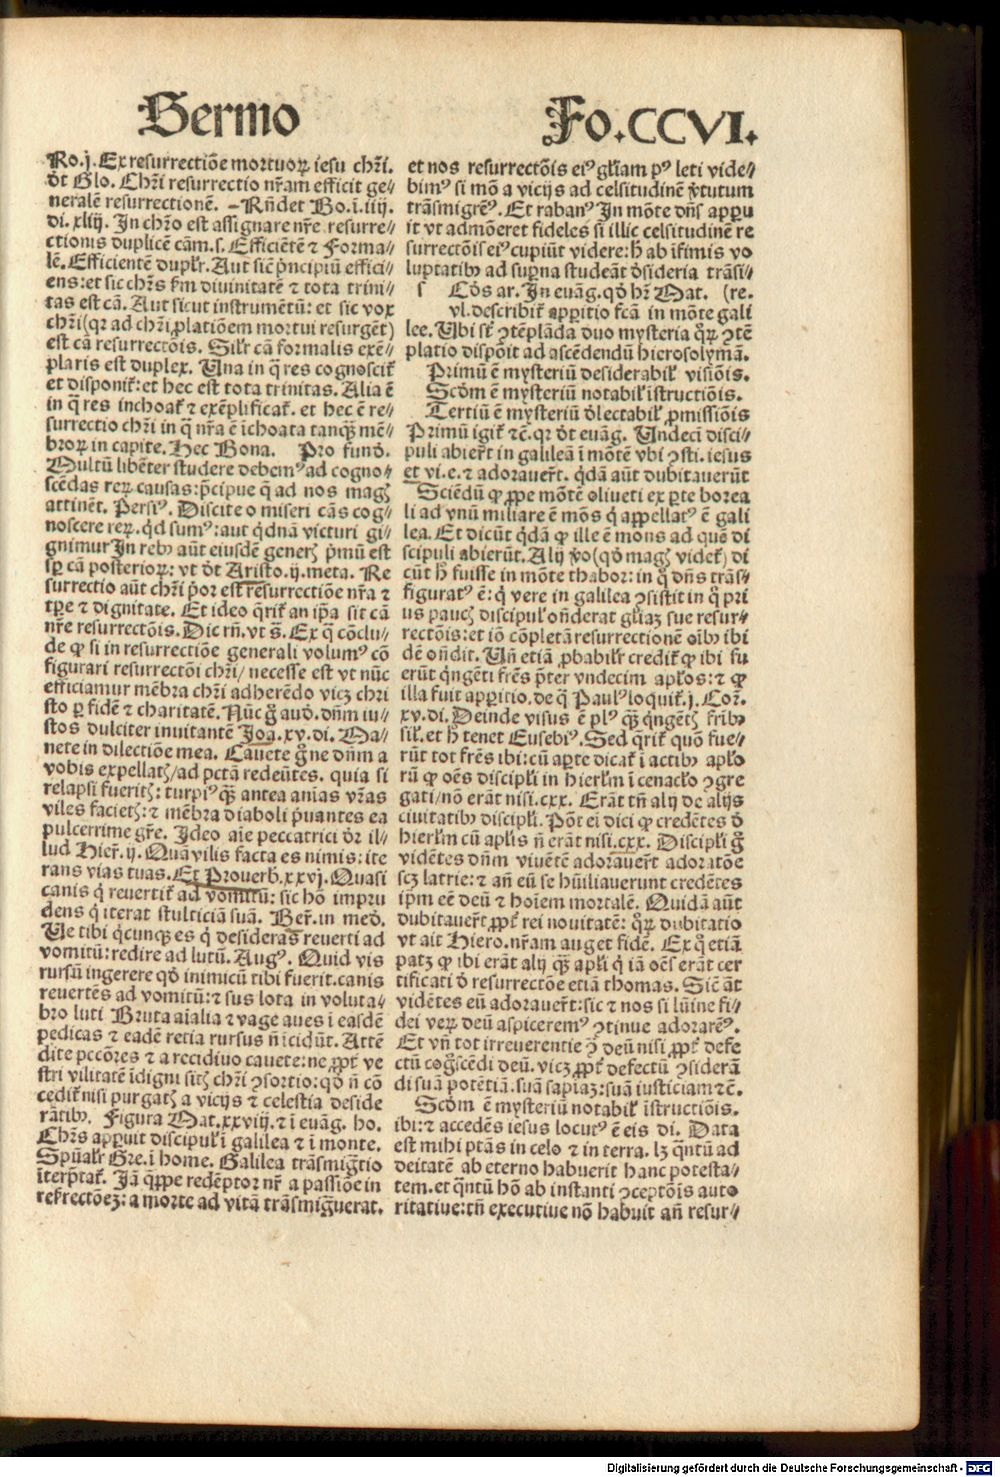 Sermo
Fo.CCVI.
Ro.j. Ex resurrectiōe mortuoꝝ iesu chr̄i.
ōt Glo. Chr̄i resurrectio nr̄am efficit ge⸗
neralē resurrectionē. –Rn̄det Bo.ī.iiij.
di.xliij. In chr̄o est assignare nr̄e resurre⸗
ctionis duplicē cām.s. Efficiētē ⁊ Forma⸗
lē. Efficientē dupl'r. Aut sic̄ prncipiū effici⸗
ens: et sic chr̄s fm divinitatē ⁊ tota trini⸗
tas est cā. Aut sicut instrumētū: et sic vox
chr̄i (qr ad chr̄i ꝓlatiōem mortui resurgēt)
est cā resurrectōis. Sil'r cā formalis exē⸗
plaris est duplex. Una in q̄ res cognoscit'
et disponit': et hec est tota trinitas. Alia ē
in q̄ res inchoat' ⁊ exēplificat'. et hec ē re⸗
surrectio chr̄i in q̄ nr̄a ē īchoata tanqȝ mē⸗
broꝝ in capite. Hec Bona. Pro fund'.
Multū libēter studere debemꝰ ad cogno⸗
scēdas reꝝ causas: p̄cipue q̄ ad nos magꝭ
attinēt. Persiꝰ. Discite o miseri cās cog⸗
noscere reꝝ. qd sumꝰ: aut qdnā victuri gi⸗
gnimur In rebꝰ aūt eiusdē generꝭ pmū est
sꝑ cā posterioꝝ: vt ōt Aristo.ij.meta. Re
surrectio aūt chr̄i por est resurrectiōe nr̄a ⁊
tꝑe ⁊ dignitate. Et ideo qrit' an ip̄a sit cā
nr̄e resurrectōis. Dic rn̄. vt s̄. Ex q̄ cōclu⸗
de ꝙ si in resurrectiōe generali volumꝰ cō
figurari resurrectōi chr̄i/ necesse est vt nūc
efficiamur mēbra chr̄i adherēdo vicȝ chri
sto ꝑ fidē ⁊ charitatē. Nūc g̊ aud'. dn̄m iu⸗
stos dulciter inuitantē Joā.xv.di. Ma⸗
nete in dilectiōe mea. Cauete g̊ ne dn̄m a
vobis expellatꝭ/ad pctā redeūtes. quia si
relapsi fueritꝭ: turpiꝰ qȝ antea anias vr̄as
viles facietꝭ: ⁊ mēbra diaboli puantes ea
pulcerrime gr̄e. Ideo aīe peccatrici ōr il⸗
lud Hier̄.ij. Quā vilis facta es nimis: ite
rans vias tuas. Et Prouerb.xxvj. Quasi
canis q reuertit' ad vomitū: sic hō impru
dens q iterat stulticiā suā. Ber̄. in med'.
Ue tibi qcunqȝ es q desideras reuerti ad
vomitū: redire ad lutū. Augꝰ. Quid vis
rursū ingerere qd' inimicū tibi fuerit. canis
reuertēs ad vomitū: ⁊ sus lota in voluta⸗
bro luti Bruta aīalia ⁊ vage aues ī easdē
pedicas ⁊ eadē retia rursus n̄ icidūt. Attē
dite pccōres ⁊ a recidiuo cauete: ne ꝓpt' ve
stri vilitatē īdigni sitꝭ chr̄i ꝯsortio: qd' n̄ cō
cedit' nisi purgatꝭ a vicijs ⁊ celestia deside
rātibꝰ. Figura Mat.xxviij. ⁊ ī euāg. ho.
Chr̄s apparuit discipul' ī galilea ⁊ ī monte.
Spūal'r Gre.ī home. Galilea trāsmigr̄tio
īterp̄tat'. Jā qppe redēptor nr̄ a passiōe in
resrectōeȝ: a morte ad vitā trāsmigrauerat.
et nos resurrectōis eiꝰ gl'iam pꝰ leti vide⸗
bimꝰ si mō a vicijs ad celsitudinē v̓tutum
trāsmigrēꝰ. Et rabanꝰ In mōte dn̄s apparu
it vt admōeret fideles si illic celsitudinē re
surrectōis eiꝰ cupiūt videre: h̄ ab īfimis vo
luptatibꝰ ad suꝑna studeāt d'sideria trāsi⸗
s Cōs ar. In euāg. qd' hr̄ Mat. (re.
vl. describit' apparitio fcā in mōte gali
lee. Ubi st' ꝯtēplāda duo mysteria qꝝ ꝯtē
platio dispōit ad ascēdendū hierosolymā.
Primū ē mysteriū desiderabil' visiōis.
Scdm ē mysteriū notabil' īstructiōis.
Tertiū ē mysteriū d'lectabil' ꝓmissiōis
Primū igit' ⁊c̄. qr ōt euāg. Undeci disci⸗
puli abier̄t in galileā ī mōtē vbi ꝯsti. iesus
et vi.e. ⁊ adorauer̄t. qdā aūt dubitauerūt
Sciēdū ꝙ ꝓpe mōtē oliueti ex ꝑte borea
li ad vnū miliare ē mōs q appellatꝰ ē gali
lea. Et dicūt qdā ꝙ ille ē mons ad quē di
scipuli abierūt. Alij v̓o (qd' magꝭ videt') di
cūt h̄ fuisse in mōte thabor: in q̊ dn̄s trās⸗
figuratꝰ ē: q vere in galilea ꝯsistit in q̊ pri
us paucꝭ discipul' on̄derat gl'iaȝ sue resur⸗
rectōis: et iō cōpletā resurrectionē oībꝰ ibi
dē on̄dit. Un̄ etiā ꝓbabil'r credit' ꝙ ibi fu
erūt qngēti fr̄es p̄ter vndecim apl'os: ⁊ ꝙ
illa fuit apparitio. de q̄ Paulꝰ loquit'.j. Cor̄.
xv.di. Deinde visus ē plꝰ qȝ qngētꝭ fribꝰ
sil'. et h̄ tenet Eusebiꝰ. Sed qrit' quō fue⸗
rūt tot fr̄es ibi: cū aꝑte dicat' ī actibꝰ aplo
rū ꝙ oēs discipl'i in hierlm ī cenacl'o ꝯgre
gati/nō erāt nisi.cxx. Erāt tn̄ alij de alijs
ciuitatibꝰ discipl'i. Pōt ei dici ꝙ credētes d'
hierlm cū apl'is n̄ erāt nisi.cxx. Discipl'i g̊
vidētes dn̄m viuētē adorauer̄t adoratōe
scȝ latrie: ⁊ an̄ eū se hūiliauerunt credētes
ip̄m eē deū ⁊ hoīem mortalē. Quidā aūt
dubitauer̄t ꝓpt' rei nouitatē: qꝝ dubitatio
vt ait Hiero. nr̄am auget fidē. Ex q̊ etiā
patȝ ꝙ ibi erāt alij qȝ apl'i q iā oēs erāt cer
tificati d' resurrectōe etiā thomas. Sic̄ āt
vidētes eū adorauer̄t: sic ⁊ nos si lūine fi⸗
dei veꝝ deū aspiceremꝰ ꝯtinue adorarēꝰ.
Et vn̄ tot irreuerentie ꝯ̄ deū nisi ꝓpt' defe
ctū cog̊scēdi deū. vicȝ ꝓpt' defectū ꝯsiderā
di suā potētiā: suā sapiaȝ: suā iusticiam ⁊c̄.
Scdm ē mysteriū notabil' īstructiōis.
ibi: ⁊ accedēs iesus locutꝰ ē eis di. Data
est mihi ptās in celo ⁊ in terra. lȝ qntū ad
deitatē ab eterno habuerit hanc potesta⸗
tem. et qntū hō ab instanti ꝯceptōis auto
ritatiue: tn̄ executiue nō habuit an̄ resur⸗
Digitalisierung gefördert durch die Deutsche Forschungsgemeinschaft - DFG